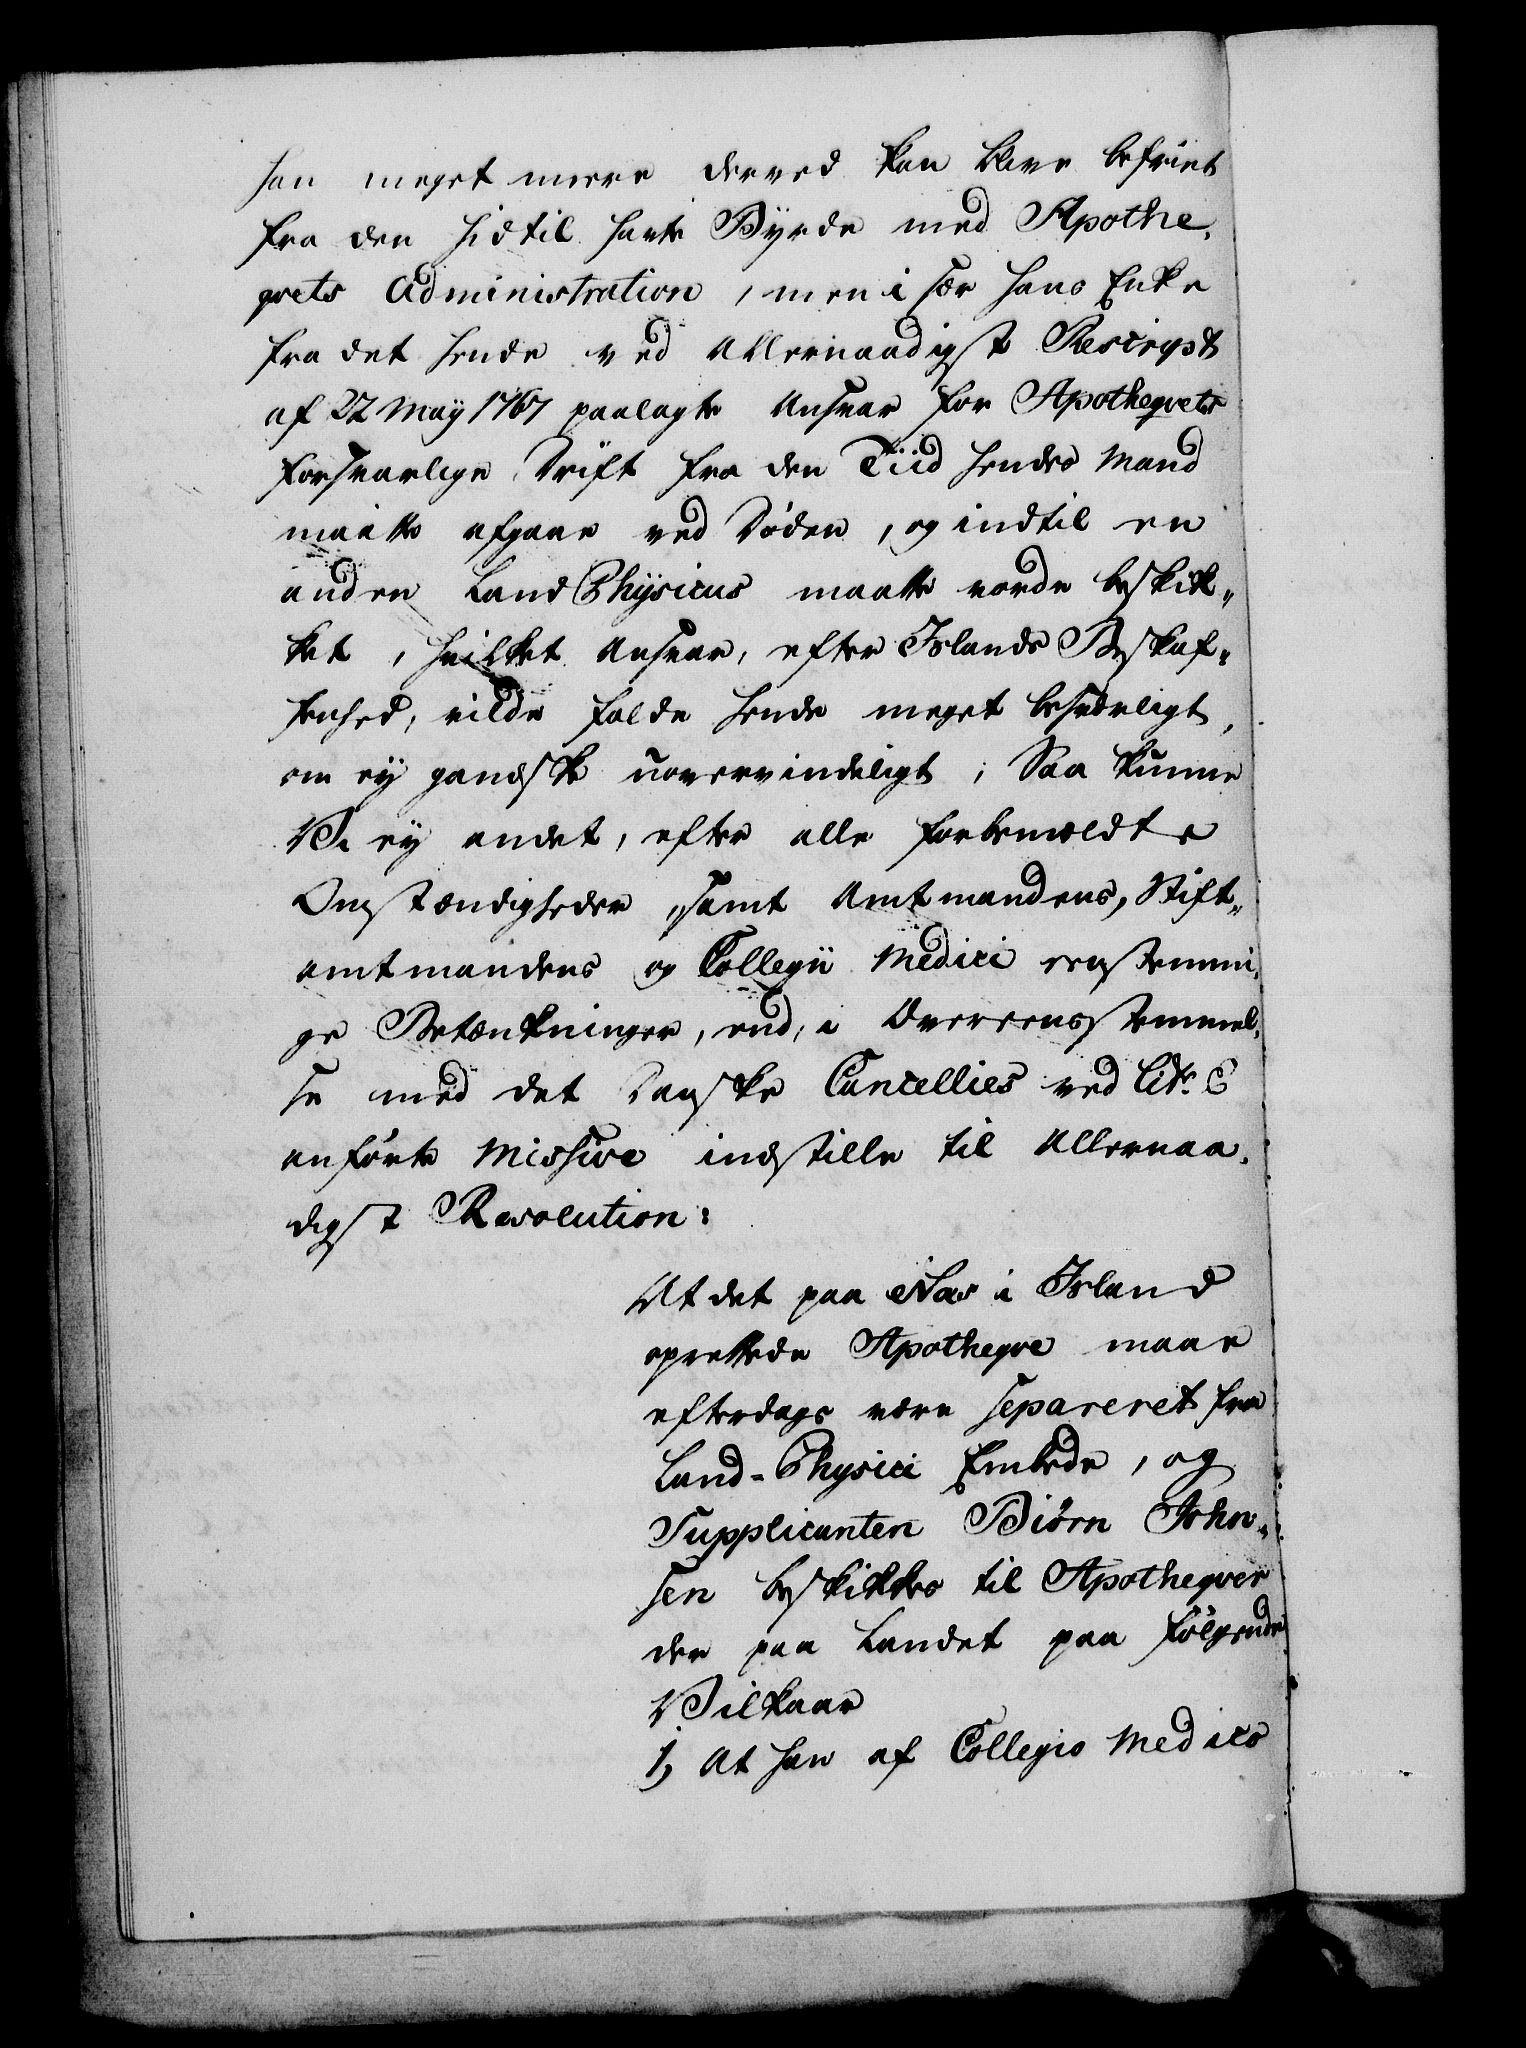 han meget meere derved kan blive befriet
fra den hidtil havte Byrde med Apothe,
qvets Administration, men i sær hans Enke
fra det hende ved Allernaadigst Rescript
af 22 May 1767 paalagte Ansvar for Apotheqvets
forsvarlige Drift fra den Tiid hendes Mand
maatte afgaae ved Døden, og indtil en
anden Land Physicus maatte vorde beskik„
ket, hvilket Ansvar, efter Islands Beskaf„
fenhed, vilde falde hende meget besværligt,
om ey gandske uovervindeligt; Saa kunne
Vi ey andet, efter alle forbemeldte
Omstændigheder, samt Amtmandens, Stift„
amtmandens og Collegii Medici eenstemmi,
ge Betænkninger, end, i Overeensstemmel,
se med det Danske Cancellies ved Litr. E
anførte Missive indstille til Allernaa,
digst Resolution:
At det paa Næs i Island
oprettede Apotheqve maae
efterdags være separeret fra
Land-Physici Embede, og
Supplicanten Biörn John„
sen beskikkes til Apotheqver
der paa Landet paa følgende
Vilkaar
1, At han af Collegio Medico